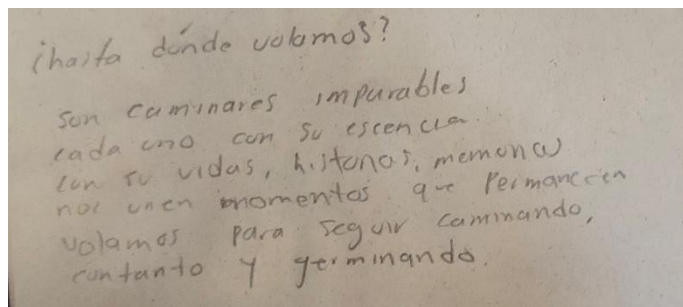 ¡hasta dónde volamos?
Son caminares imparables
cada uno con su escencia
con su vidas, historias, memorias
nos unen momentos que permanecen
volamos para seguir caminando,
contanto y germinando.